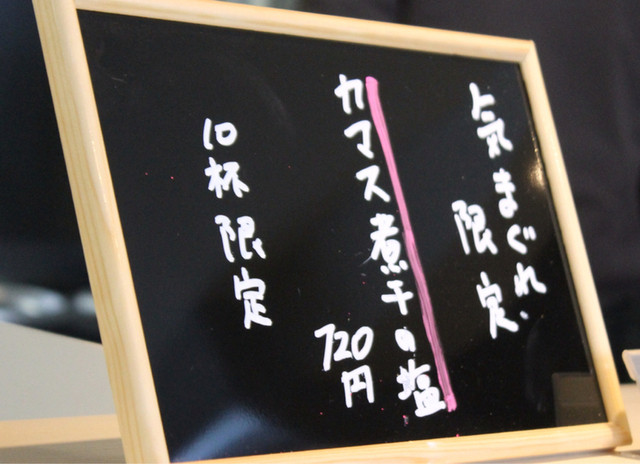 気まぐれ、
限定
カマス煮干の塩
720円
10杯限定